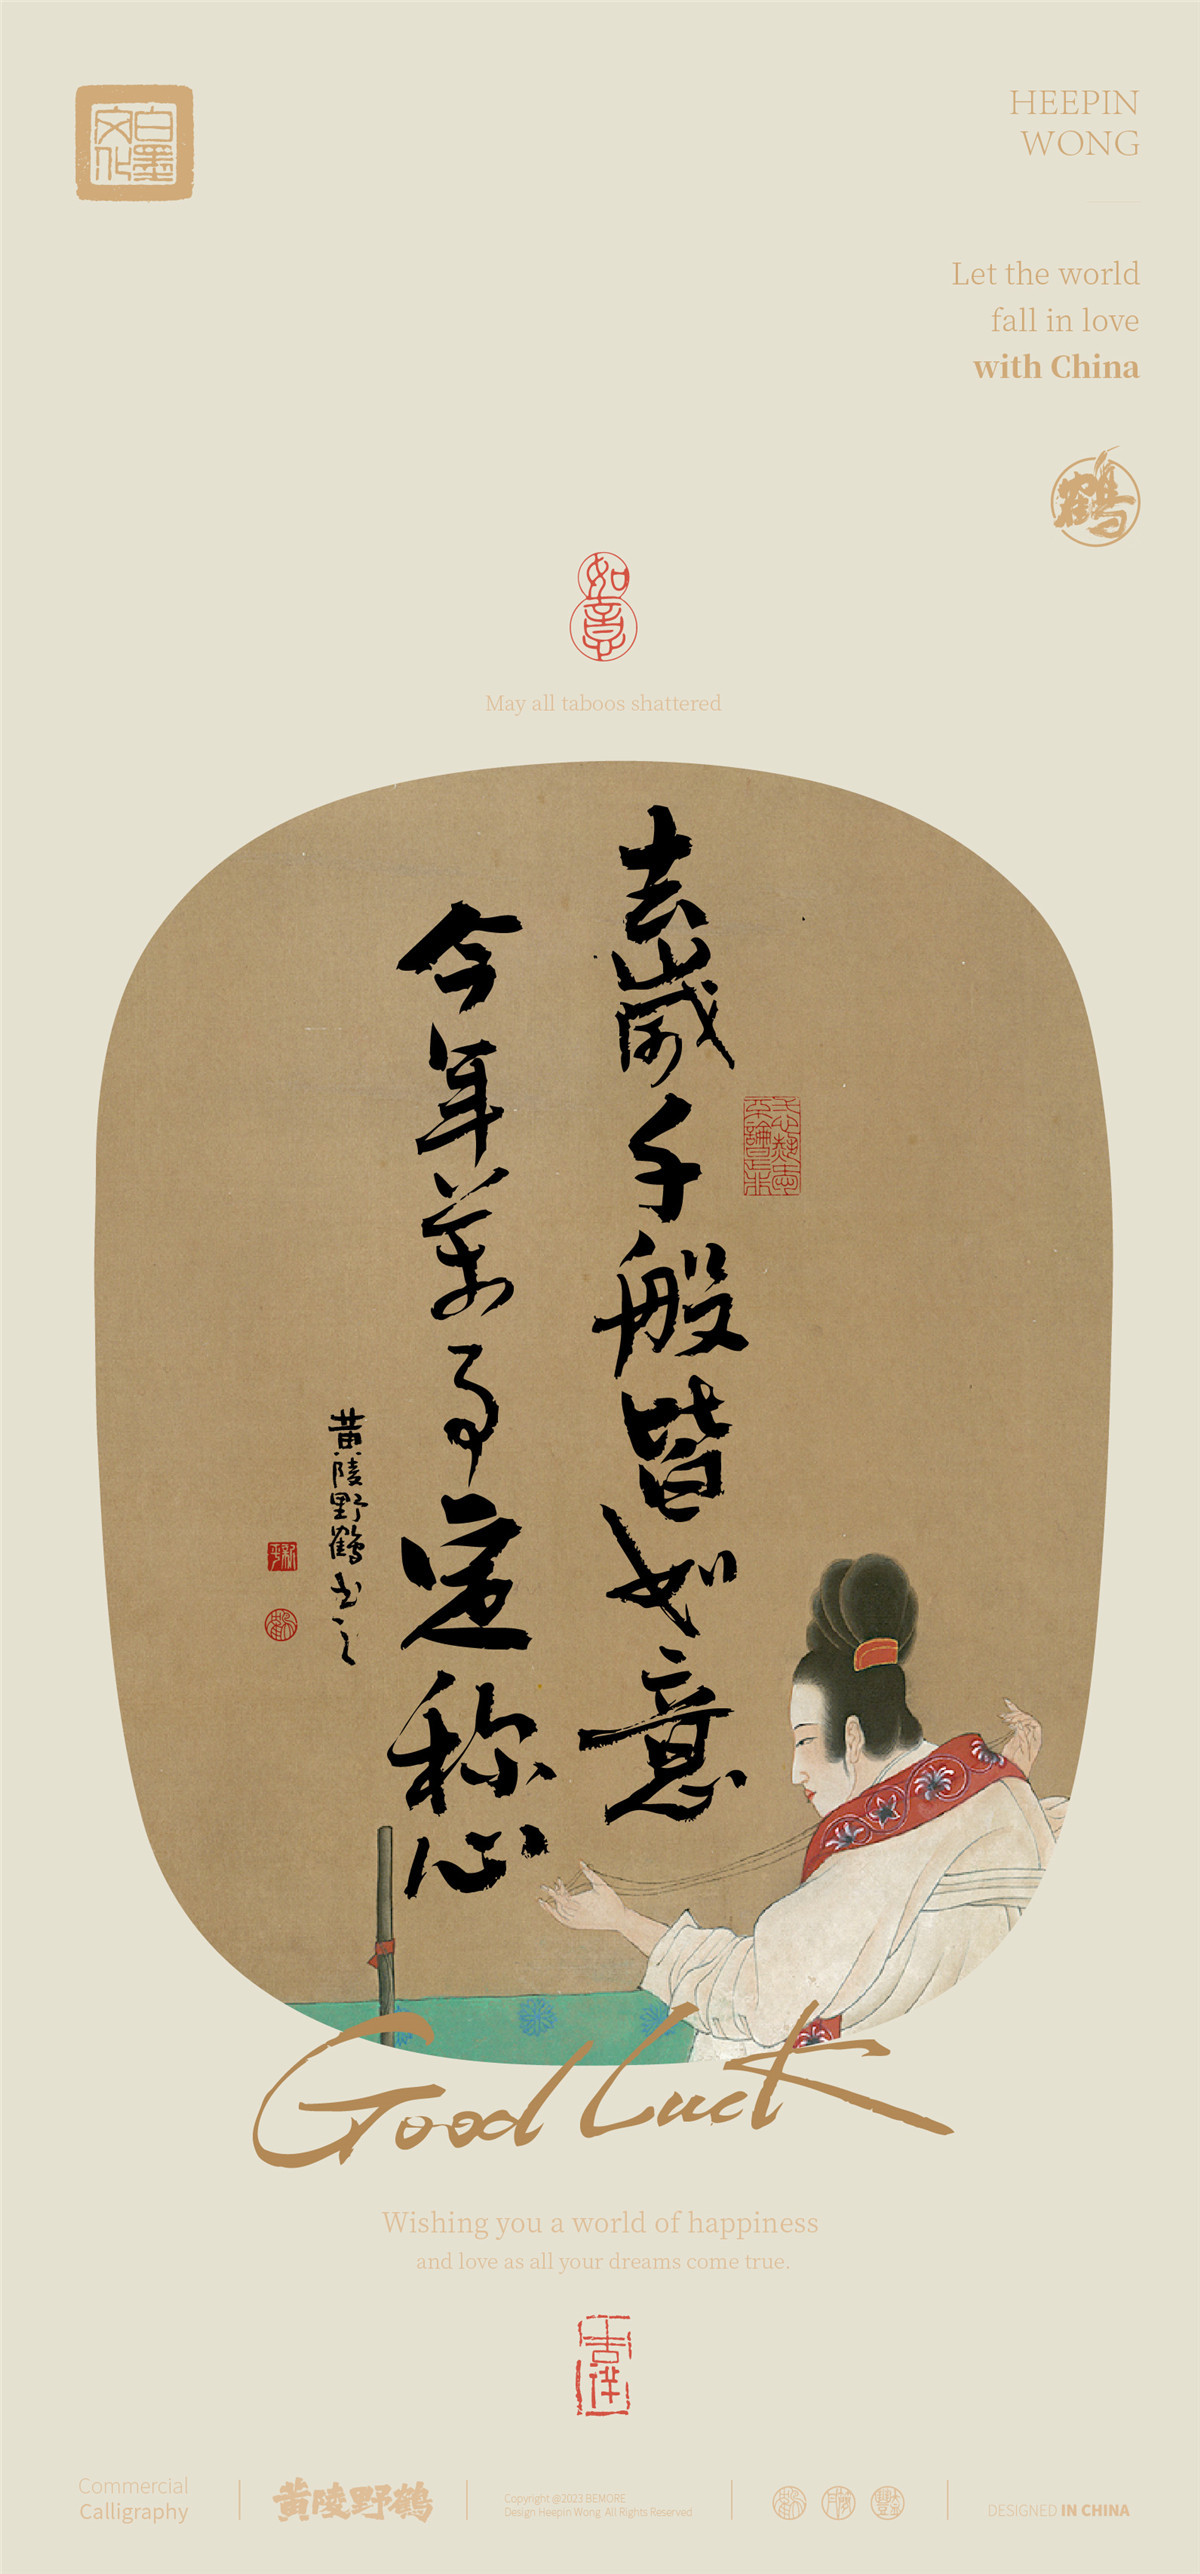 白墨
文化
HEEPIN
WONG
Let the world
fall in love
with China
鶴
如意
May all taboos shattered
去歲千般皆如意
今年萬事定称心
黄陵野鶴书之
Good Luck
Wishing you a world of happiness
and love as all your dreams come true.
吉祥
Commercial
Calligraphy
黄陵野鶴
Copyright @2023 BEMORE
Design Heepin Wong. All Rights Reserved
DESIGNED IN CHINA